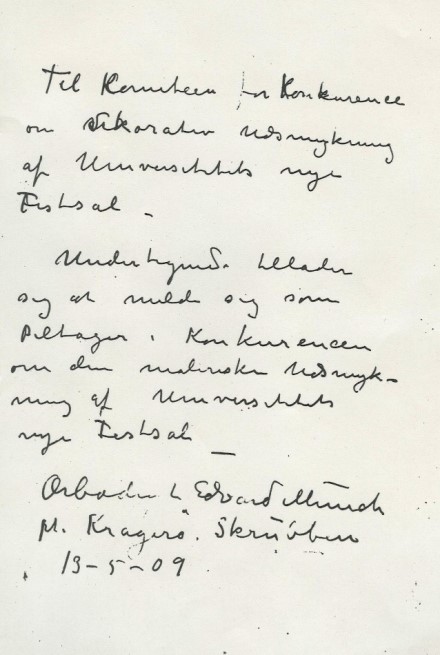 Til Komiteen for Konkurence
om dekorativ Udsmykning
af Universitetets nye
Festsal –
Undertegnede tillader
sig at melde sig som
Deltager i Konkurencen
om den maleriske Udsmyk-
ning af Universitetets
nye Festsal –
Ærbødigst Edvard Munch
pt. Kragerø. Skrubben
13–5–09